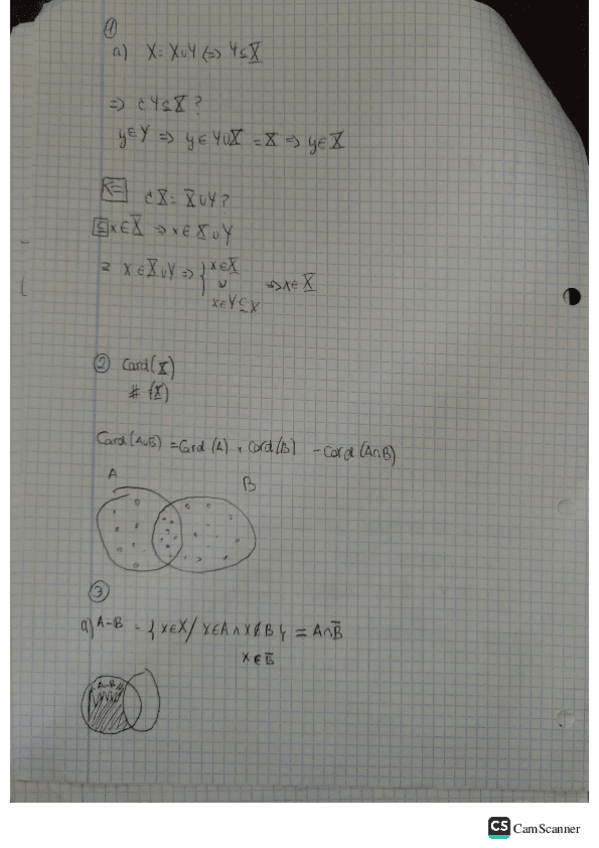 ①
a) X = X∪Y ⇔ Y⊆X
⇒) ¿Y⊆X?
y∈Y ⇒ y∈Y∪X = X ⇒ y∈X
⇐ ¿X = X∪Y?
⊆ x∈X ⇒ x∈X∪Y
⊇ x∈X∪Y ⇒ { x∈X
∪
x∈Y⊆X
⇒ x∈X
② Card(X)
# (X)
Card(A∪B) = Card(A) + Card(B) - Card(A∩B)
A
B
③
a) A-B = {x∈X / x∈A ∧ x∉B} = A∩B̅
x∈B̅
A-B
CS CamScanner